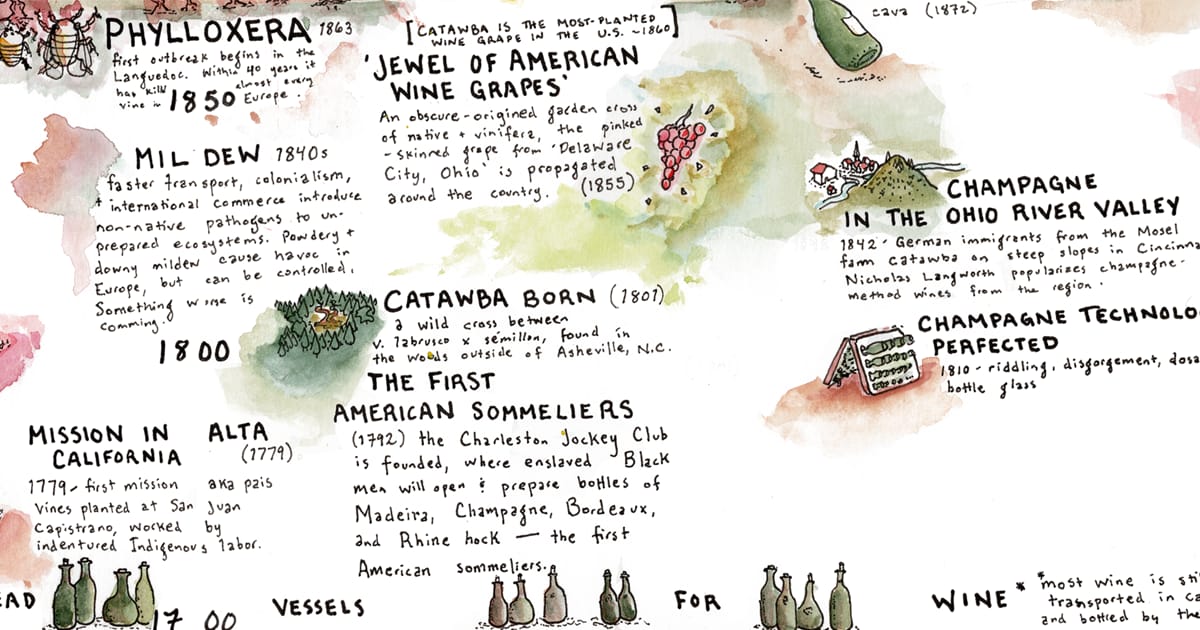 PHYLLOXERA 1863
first outbreak begins in the
Languedoc. Within 40 years it
has kill almost every
vine in Europe.
1850
[CATAWBA IS THE MOST-PLANTED
WINE GRAPE IN THE U.S. ~1860]
'JEWEL OF AMERICAN
WINE GRAPES'
An obscure-origined garden cross
of native + vinifera, the pinked
-skinned grape from 'Delaware
City, Ohio' is propagated
around the country. (1855)
cava (1872)
MILDEW 1840s
faster transport, colonialism,
+ international commerce introduce
non-native pathogens to un-
prepared ecosystems. Powdery +
downy mildew cause havoc in
Europe, but can be controlled.
Something worse is
comming.
1800
CATAWBA BORN (1801)
a wild cross between
v. labrusca x sémillon, found in
the woods outside of Asheville, N.C.
CHAMPAGNE
IN THE OHIO RIVER VALLEY
1842 - German immigrants from the Mosel
farm Catawba on steep slopes in Cincinna
Nicholas Langworth popularizes champagne-
method wines from the region.
CHAMPAGNE TECHNOLO
PERFECTED
1810 - riddling, disgorgement, dosa
bottle glass
THE FIRST
AMERICAN SOMMELIERS
(1792) the Charleston Jockey Club
is founded, where enslaved Black
men will open & prepare bottles of
Madeira, Champagne, Bordeaux,
and Rhine hock — the first
American sommeliers.
MISSION IN ALTA
CALIFORNIA (1779)
1779 - first mission aka pais
Vines planted at San Juan
Capistrano, worked by
indentured Indigenous labor.
EAD
1700
VESSELS
FOR
WINE*
*most wine is sti
transported in ca
and bottled by the